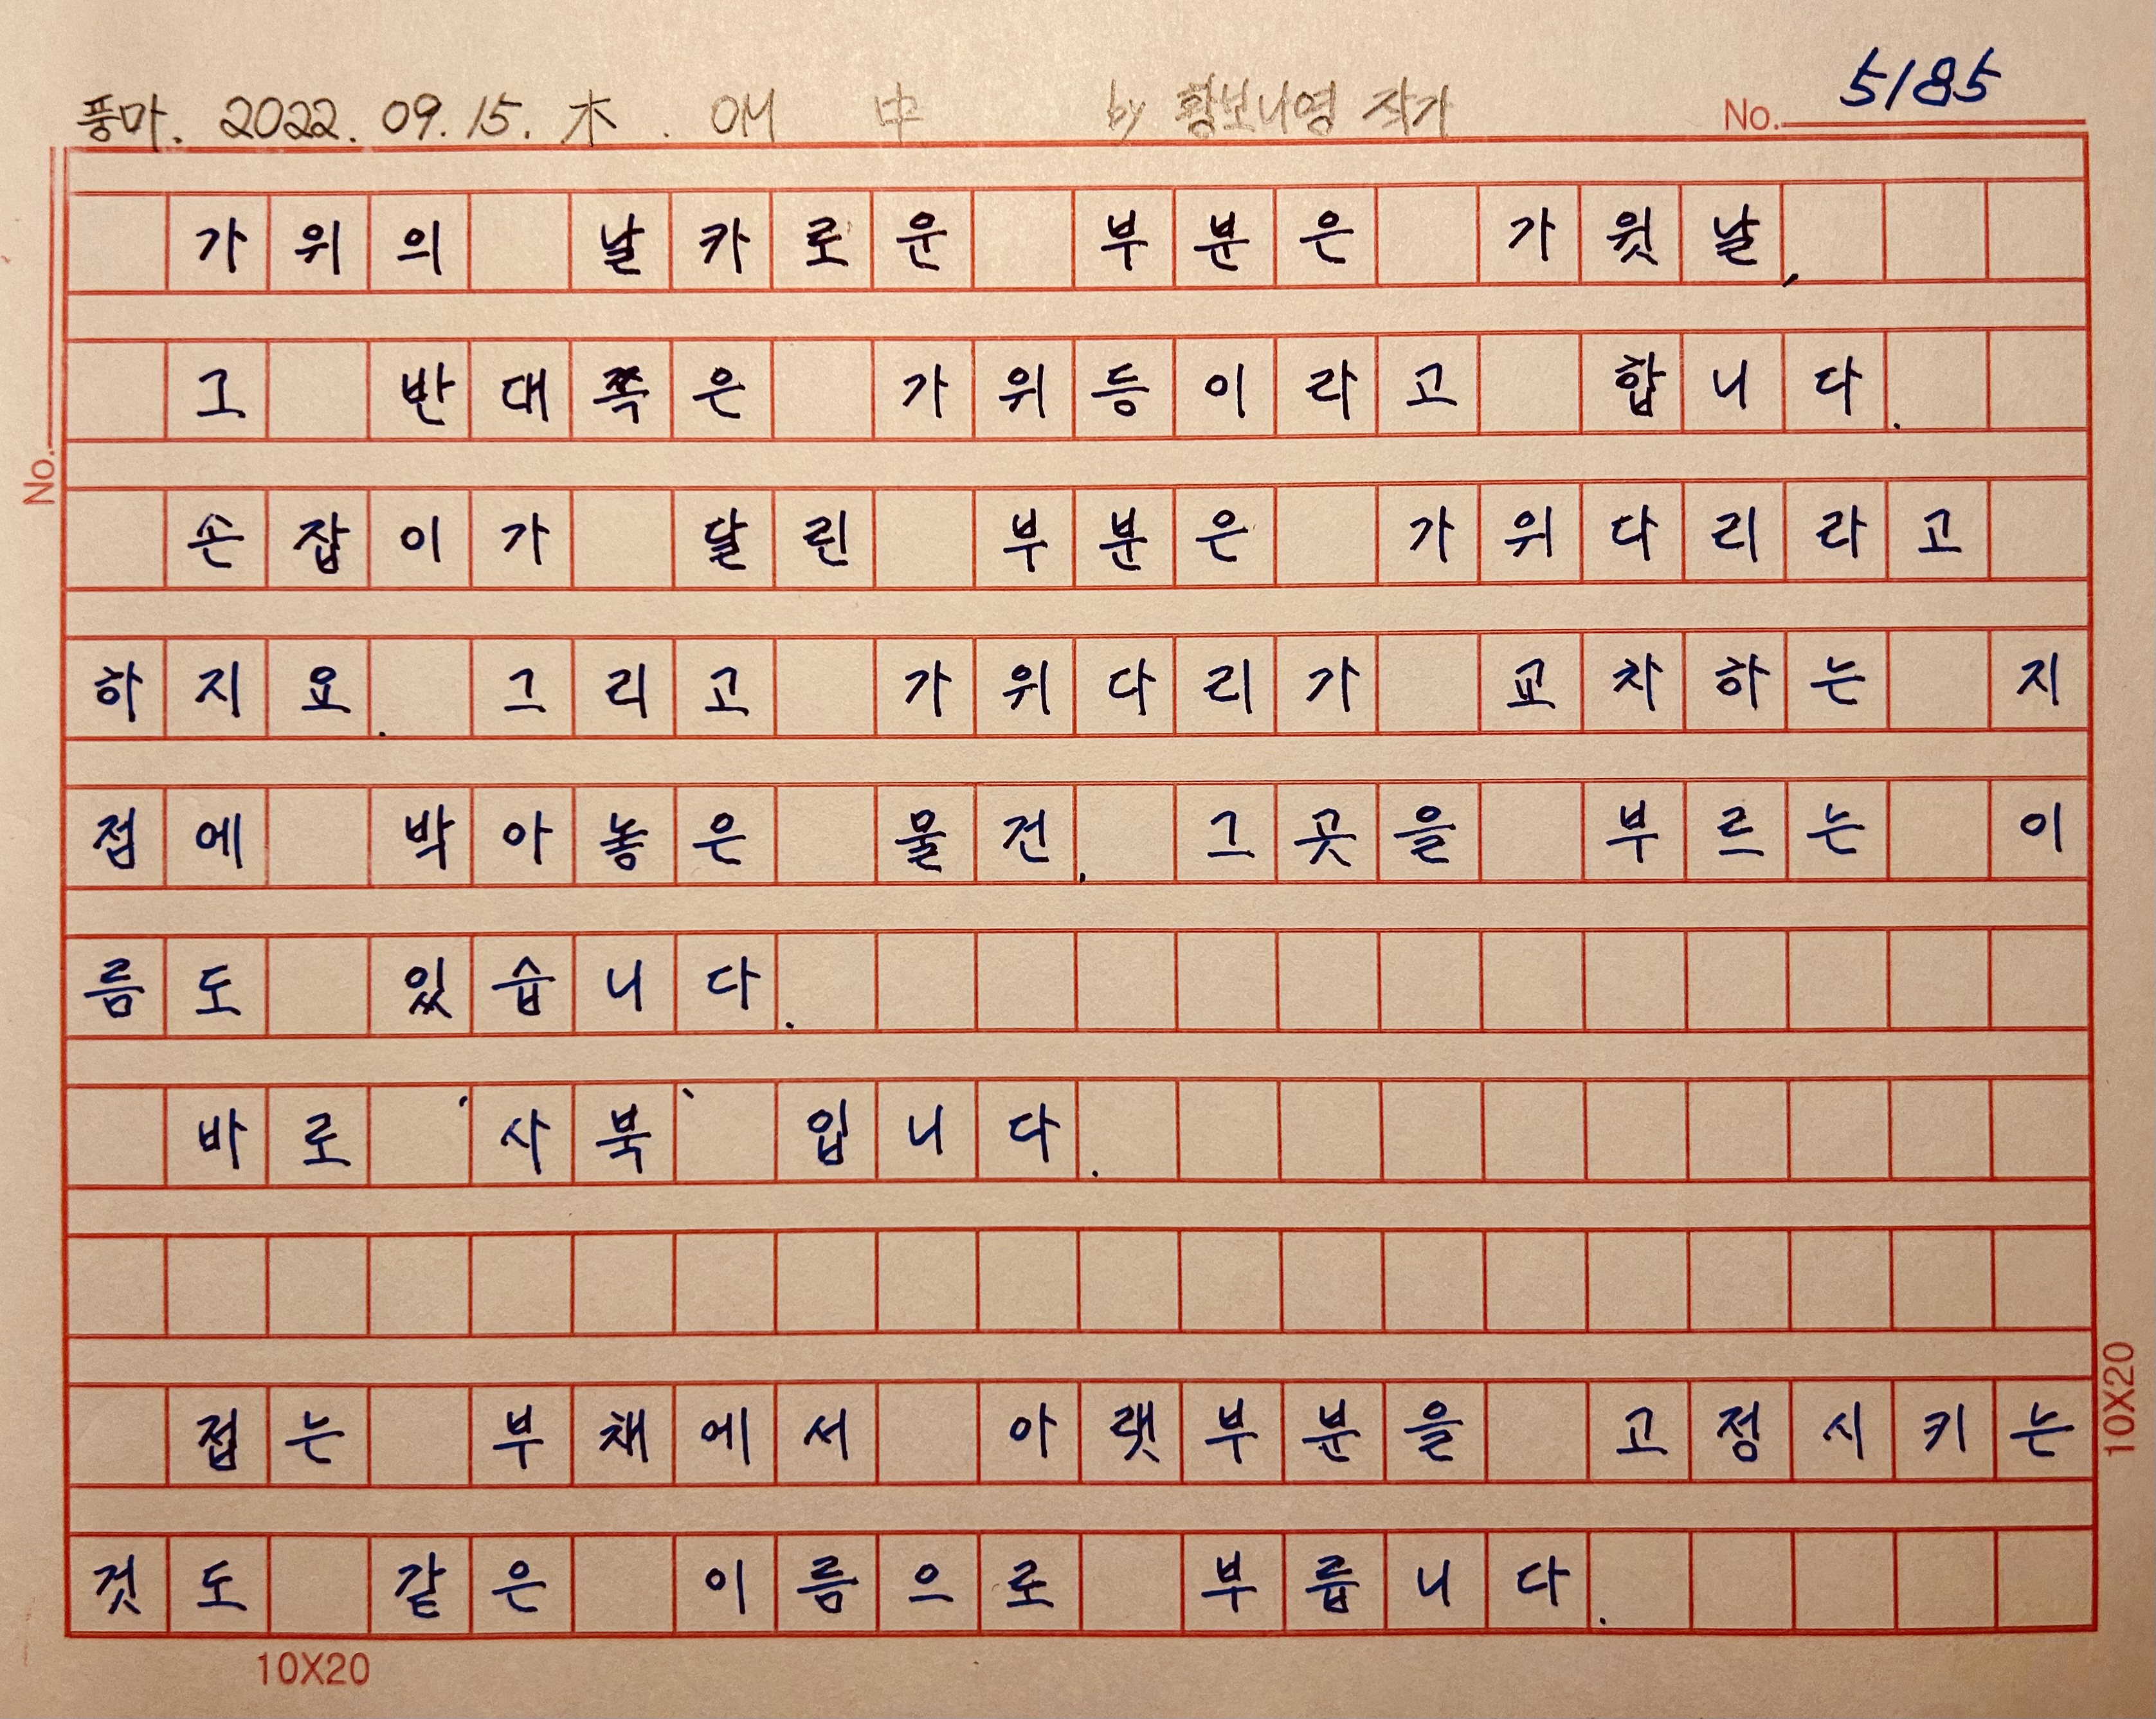 풍마. 2022. 09. 15. 木. OM 中 by 황보나영 작가 No. 5185
가위의 날카로운 부분은 가윗날,
그 반대쪽은 가위등이라고 합니다.
No.
손잡이가 달린 부분은 가위다리라고
하지요. 그리고 가위다리가 교차하는 지
점에 박아놓은 물건. 그곳을 부르는 이
름도 있습니다.
바로 '사북' 입니다.
접는 부채에서 아랫부분을 고정시키는
것도 같은 이름으로 부릅니다.
10X20
10X20